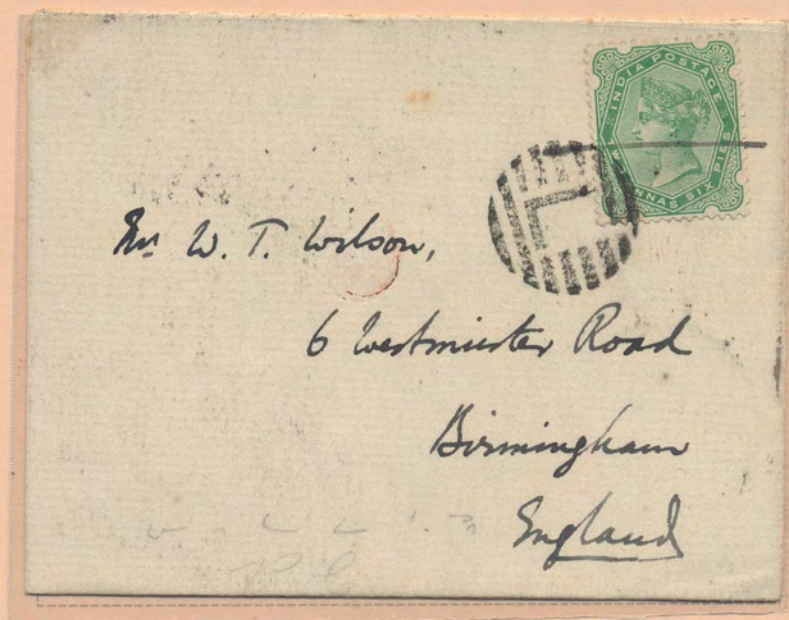 INDIA POSTAGE
ANNAS SIX PIES
L
Mr W. T. Wilson,
6 Westminster Road
Birmingham
England